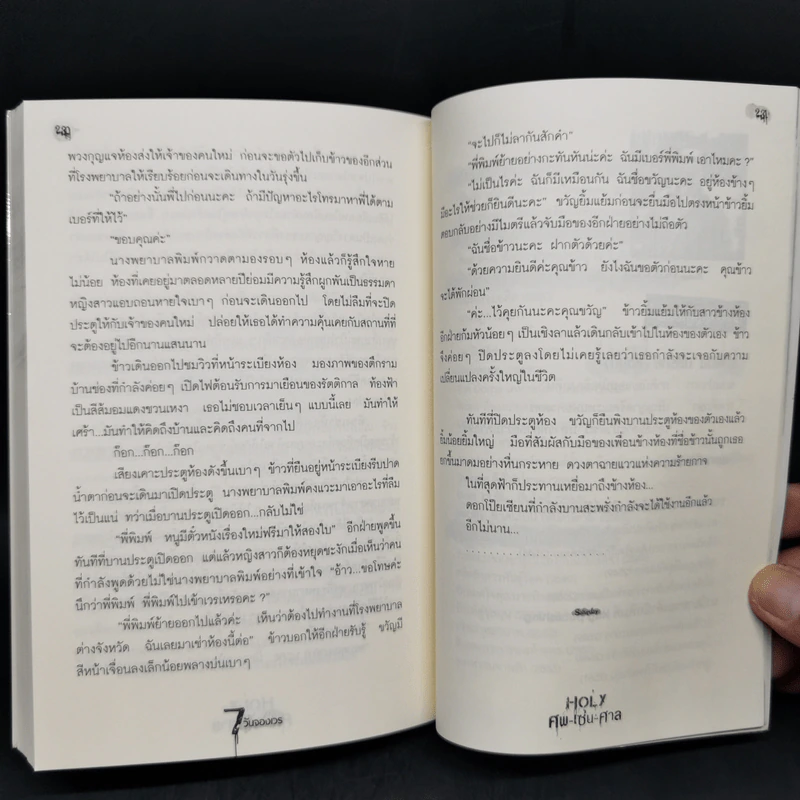 พวงกุญแจห้องส่งให้เจ้าของคนใหม่ ก่อนจะขอตัวไปเก็บข้าวของอีกส่วน
ที่โรงพยาบาลให้เรียบร้อยก่อนจะเดินทางในวันรุ่งขึ้น
“ถ้าอย่างนั้นพี่ไปก่อนนะคะ ถ้ามีปัญหาอะไรโทรมาหาพี่ได้ตาม
เบอร์ที่ให้ไว้”
“ขอบคุณค่ะ”
นางพยาบาลพิมพ์กวาดตามองรอบๆ ห้องแล้วก็รู้สึกใจหาย
ไม่น้อย ห้องที่เคยอยู่มาตลอดหลายปีย่อมมีความรู้สึกผูกพันเป็นธรรมดา
หญิงสาวแอบถอนหายใจเบาๆ ก่อนจะเดินออกไป โดยไม่ลืมที่จะปิด
ประตูให้กับเจ้าของคนใหม่ ปล่อยให้เธอได้ทำความคุ้นเคยกับสถานที่ที่
จะต้องอยู่ไปอีกนานแสนนาน
ข้าวเดินออกไปชมวิวที่หน้าระเบียงห้อง มองภาพของตึกราม
บ้านช่องที่กำลังค่อยๆ เปิดไฟต้อนรับการมาเยือนของรัตติกาล ท้องฟ้า
เป็นสีส้มอมแดงชวนเหงา เธอไม่ชอบเวลาเย็นๆ แบบนี้เลย มันทำให้
เศร้า...มันทำให้คิดถึงบ้านและคิดถึงคนที่จากไป
ก๊อก...ก๊อก...ก๊อก
เสียงเคาะประตูห้องดังขึ้นเบาๆ ข้าวที่ยืนอยู่หน้าระเบียงรีบปาด
น้ำตาก่อนจะเดินมาเปิดประตู นางพยาบาลพิมพ์คงแวะมาเอาอะไรที่ลืม
ไว้เป็นแน่ ทว่าเมื่อบานประตูเปิดออก...กลับไม่ใช่
“พี่พิมพ์ หนูมีตั๋วหนังเรื่องใหม่ฟรีมาให้สองใบ” อีกฝ่ายพูดขึ้น
ทันทีที่บานประตูเปิดออก แต่แล้วหญิงสาวก็ต้องหยุดชะงักเมื่อเห็นว่าคน
ที่กำลังพูดด้วยไม่ใช่นางพยาบาลพิมพ์อย่างที่เข้าใจ “อ้าว...ขอโทษค่ะ
นึกว่าพี่พิมพ์ พี่พิมพ์ไปเข้าเวรเหรอคะ ?”
“พี่พิมพ์ย้ายออกไปแล้วค่ะ เห็นว่าต้องไปทำงานที่โรงพยาบาล
ต่างจังหวัด ฉันเลยมาเช่าห้องนี้ต่อ” ข้าวบอกให้อีกฝ่ายรับรู้ ขวัญมี
สีหน้าเจื่อนลงเล็กน้อยพลางบ่นเบาๆ
7 วันจองเวร
“จะไปก็ไม่ลากันสักคำ”
“พี่พิมพ์ย้ายอย่างกะทันหันน่ะค่ะ ฉันมีเบอร์พี่พิมพ์ เอาไหมคะ ?”
“ไม่เป็นไรค่ะ ฉันก็มีเหมือนกัน ฉันชื่อขวัญนะคะ อยู่ห้องข้างๆ
มีอะไรให้ช่วยก็ยินดีนะคะ” ขวัญยิ้มแย้มก่อนจะยื่นมือไปตรงหน้าข้าวยิ้ม
ตอบกลับอย่างมีไมตรีแล้วจับมือของอีกฝ่ายอย่างไม่ถือตัว
“ฉันชื่อข้าวนะคะ ฝากตัวด้วยค่ะ”
“ด้วยความยินดีค่ะคุณข้าว ยังไงฉันขอตัวก่อนนะคะ คุณข้าว
จะได้พักผ่อน”
“ค่ะ...ไว้คุยกันนะคะคุณขวัญ” ข้าวยิ้มแย้มให้กับสาวข้างห้อง
อีกฝ่ายก้มหัวน้อยๆ เป็นเชิงลาแล้วเดินกลับเข้าไปในห้องของตัวเอง ข้าว
จึงค่อยๆ ปิดประตูลงโดยไม่เคยรู้เลยว่าเธอกำลังจะเจอกับความ
เปลี่ยนแปลงครั้งใหญ่ในชีวิต
ทันทีที่ปิดประตูห้อง ขวัญก็ยืนพิงบานประตูห้องของตัวเองแล้ว
ยิ้มน้อยยิ้มใหญ่ มือที่สัมผัสกับมือของเพื่อนข้างห้องที่ชื่อข้าวนั้นถูกเธอ
ยกขึ้นมาดมอย่างหื่นกระหาย ดวงตาฉายแววแห่งความร้ายกาจ
ในที่สุดฟ้าก็ประทานเหยื่อมาถึงข้างห้อง...
ดอกโป๊ยเซียนที่กำลังบานสะพรั่งกำลังจะได้ใช้งานอีกแล้ว
อีกไม่นาน...
. . . . . . . . . . . . . . . .
HOLY
ศพ-เซ่น-ศาล